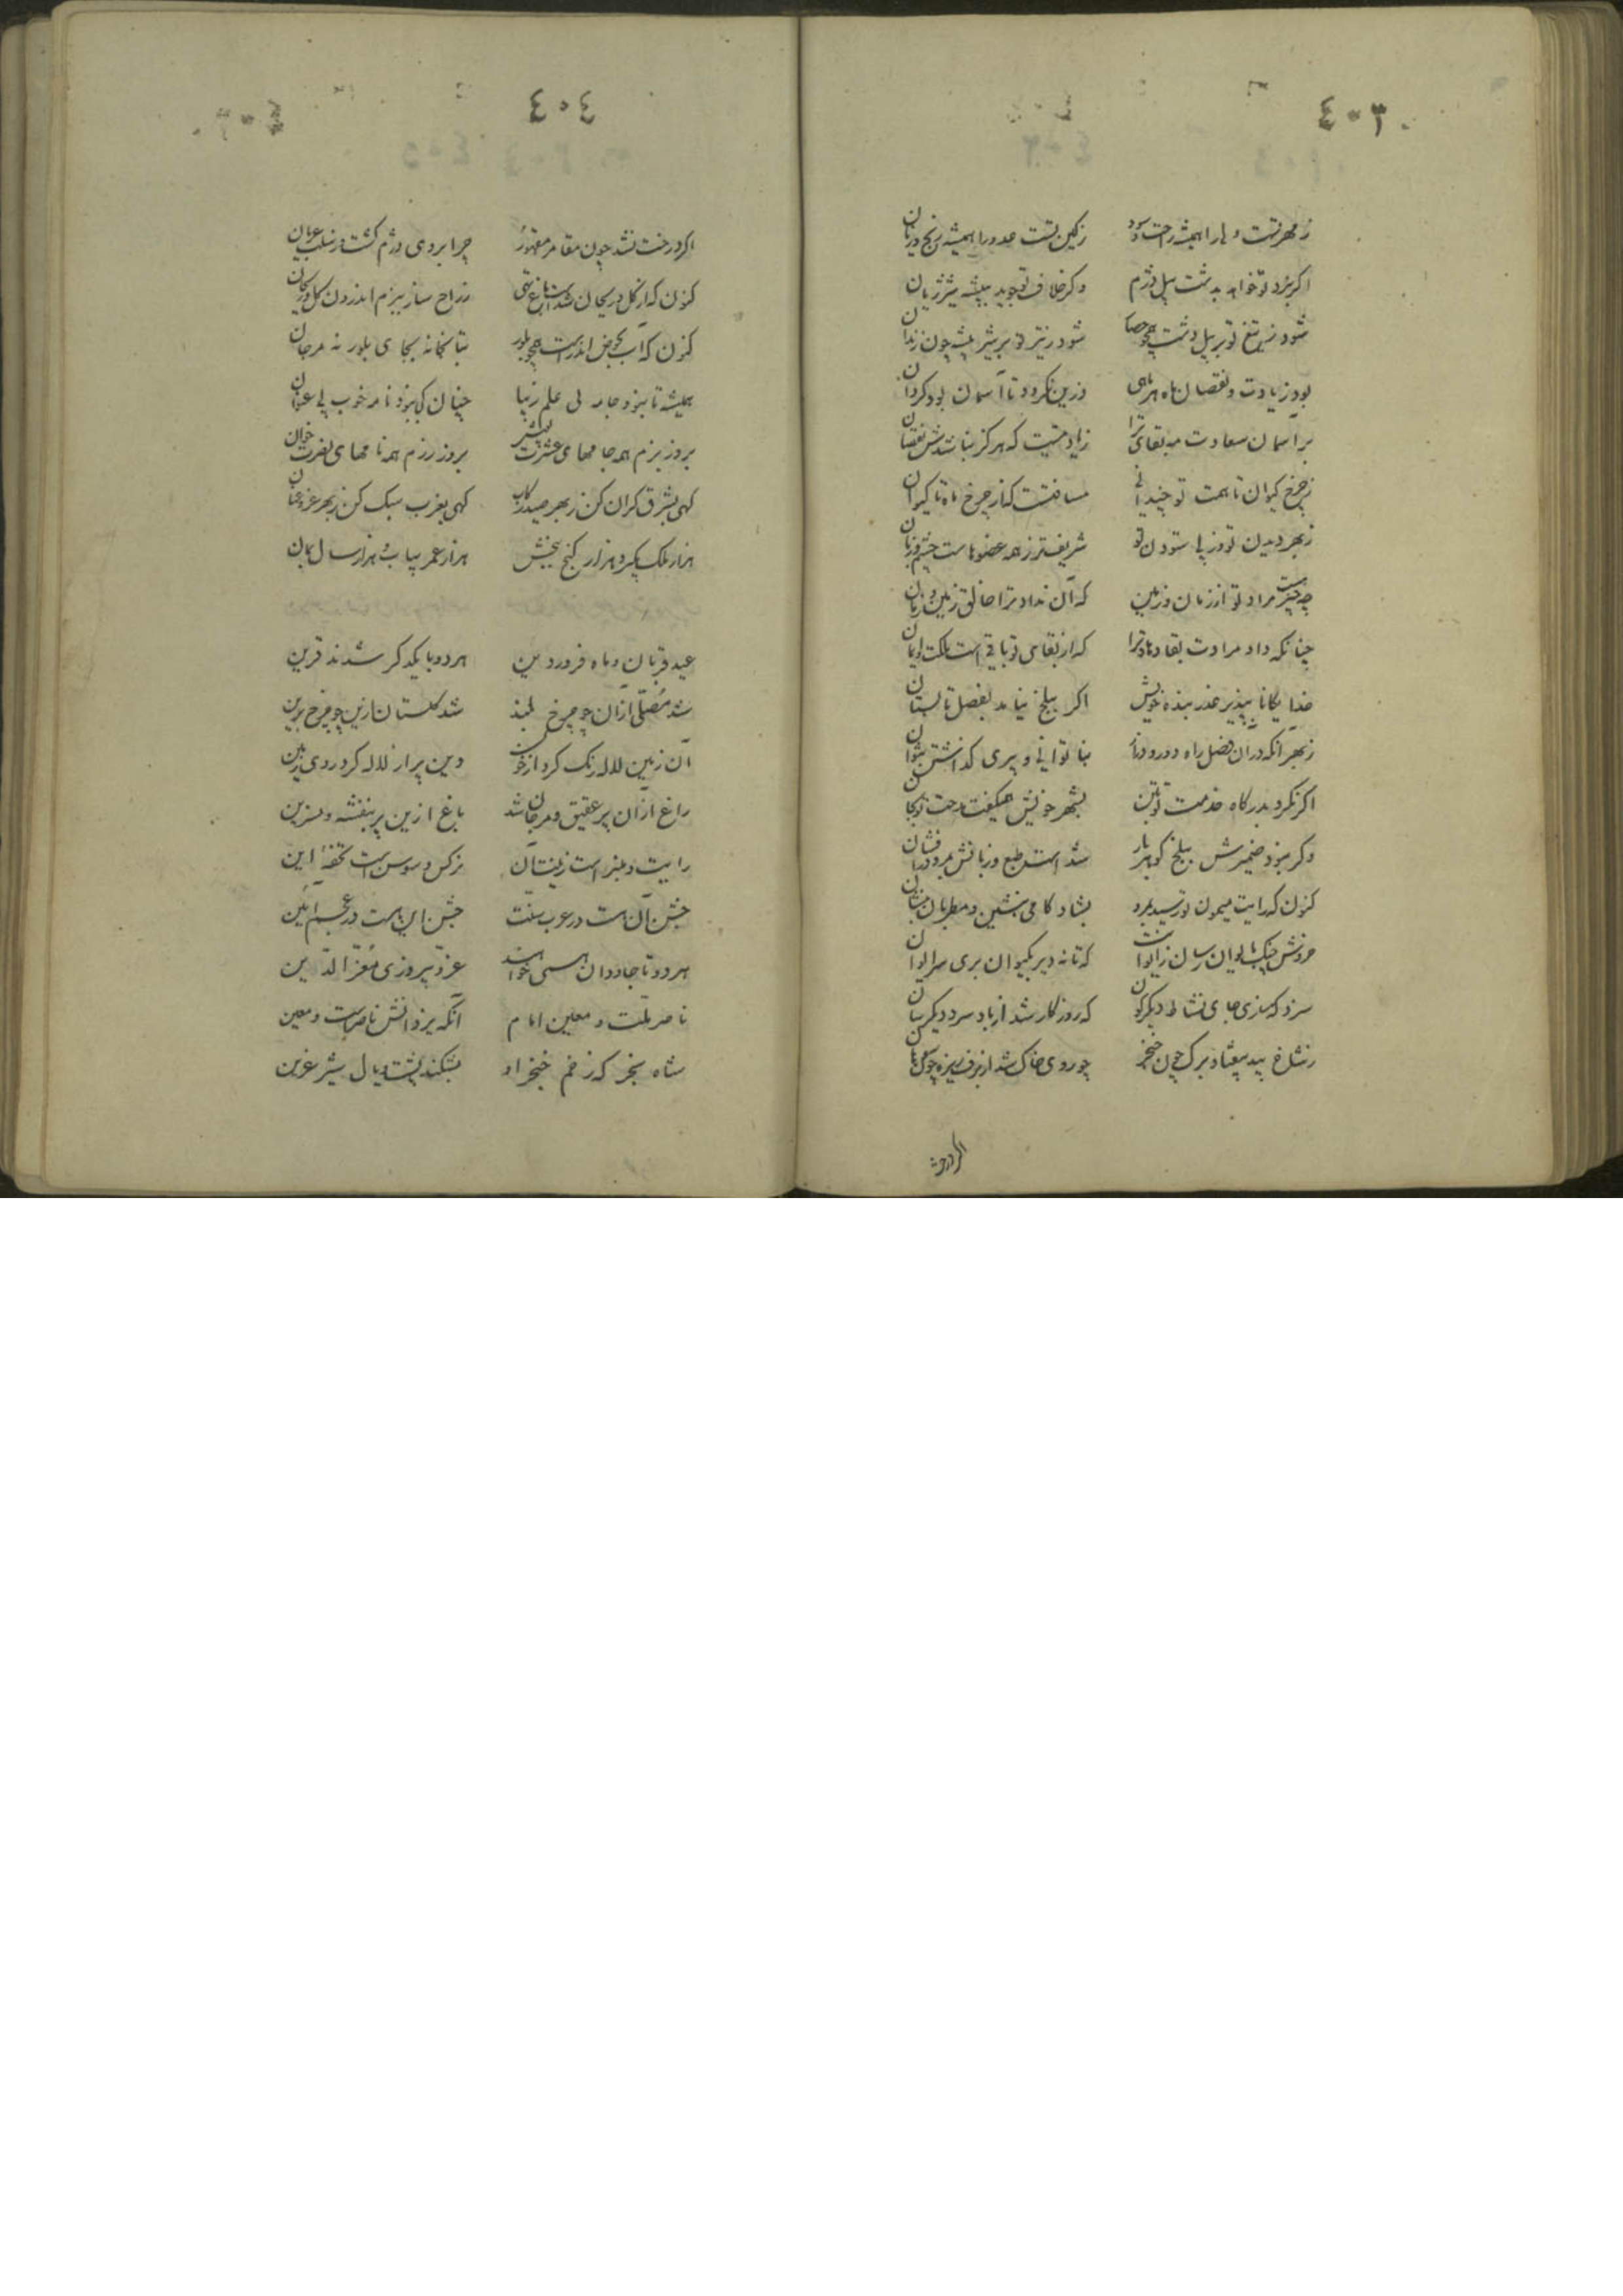 ٤٠٣
ز مهر تست ولی را همیشه راحت و سود ز کین تست عدو را همیشه رنج و زیان
اگر نبرد تو خواهد بدشت پیل دژم وگر خلاف تو جوید ببیشه شیر ژیان
شود ز تیغ تو بر پیل دشت چو حصار شود ز تیر تو بر شیر بیشه چون زندان
بود زیادت و نقصان ماه هر ماهی درین نکرود تا آسمان بود کردان
بر آسمان سعادت مه بقای ترا زیادتیست که هرکز نباشدش نقصان
ز چرخ کیوان تا همت تو چندانی مسافتست کز چرخ ماه تا کیوان
ز بهر دیدن تو وز پی ستودن تو شریفتر ز همه عضوهاست چشم و زبان
چه چیزست مراد تو از زمان و زمین که آن نداد ترا خالق زمین و زمان
چنانکه داد مرادت بقا دهاد ترا که از بقای تو باقی است ملکت و ایمان
خدایکانا بپذیر عذر بنده خویش اگر ببلخ نیامد بفصل تابستان
ز بهر آنکه در آن فصل راه دور و دراز بناتوانی و پیری کذاشتن نتوان
اگر نکرد بدرگاه خدمت تو بتن بشهر خویش همیگفت مدحت تو بجان
وگر نبود ضمیرش ببلخ گوهر بار شد است طبع و زبانش بمرو در افشان
کنون که رایت میمون تو رسید بمرو بشادکامی بنشین و مطربان بنشان
خروش چنک بایوان رسان ز ایوانت که تا نه دیر بکیوان بری سر ایوان
سزد که سازی جای نشاط دیگرگون که روزگار شد از باد سرد دیگر سان
ز شاخ بید بیفتاد برک چون خنجر چو روی خاک شد از برف ریزه چون سوهان
٤٠٤
اگر درخت نشد چون مقامر مقهور چرا بروی دژم گشت و ز سلب عریان
کنون که از گل و ریحان شد است باغ تهی ز راح ساز ببزم اندرون گل و ریحان
کنون که آب بحوض اندر است همچو بلور بتابخانه بجای بلور نه مرجان
همیشه تا نبود جامه بی علم زیبا چنان کجا نبود نامه خوب بی عنوان
بروز بزم همه جامهای عشرت پوش بروز رزم همه نامهای نصرت خوان
کهی بشرق کران کن ز بهر صید رکاب کهی بغرب سبک کن ز بهر غزو عنان
هزار ملک بگیر و هزار گنج ببخش هزار عمر بیاب و هزار سال بمان
عید قربان و ماه فروردین هر دو با یکدکر شدند قرین
شد مصلی از آن چو چرخ بلند شد گلستان ازین چو چرخ برین
آن زمین لاله رنک کرد از خون وین پر از لاله کرد روی زمین
راغ از آن پر عقیق و مرجان شد باغ ازین پر بنفشه و نسرین
نرکس و سوسن است تحفهٔ این
جشن آن هست در عرب سنت جشن این هست در عجم آئین
هر دو تا جاودان همی خواهند عز و پیروزی معز الدین
ناصر ملت و معین امام آنکه یزدانش ناصرست و معین
شاه سنجر که زخم خنجر او بشکند پشت و یال شیر عرین